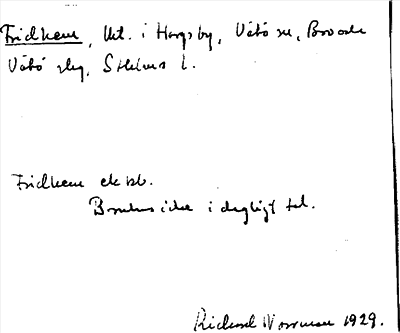 Fridhem, lht. i Harg sby, Vätö sn, Bro och
Vätö skg, Sthlms l.
Fridhem ek bl.
Brukas icke i dagligt tal.
Richard Norrman 1929.